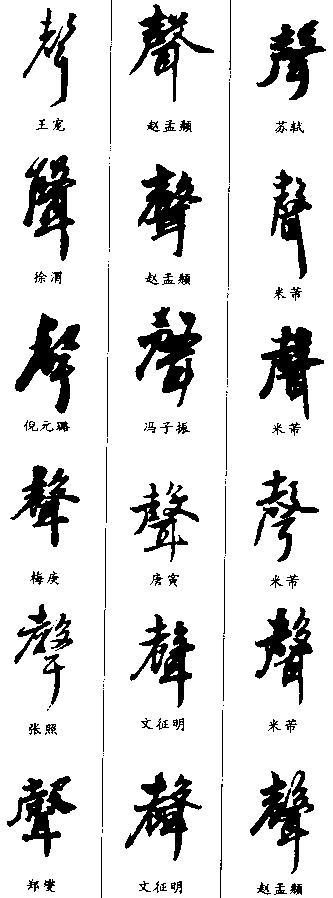 聲 聲 聲
王宠 赵孟頫 苏轼
聲 聲 聲
徐渭 赵孟頫 米芾
聲 聲 聲
倪元璐 冯子振 米芾
聲 聲 聲
梅庚 唐寅 米芾
聲 聲 聲
张照 文征明 米芾
聲 聲 聲
郑燮 文征明 赵孟頫